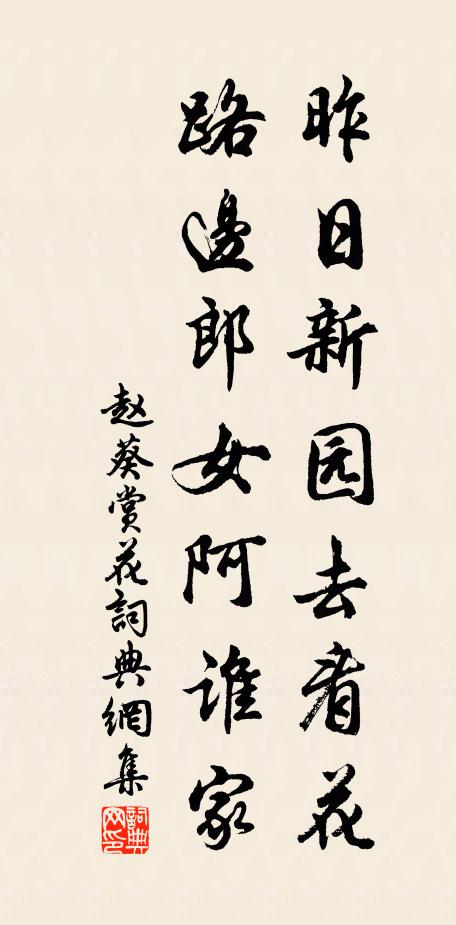 昨日新园去看花
路邊郎女阿谁家
赵葵赏花詞典網集
詞典网印